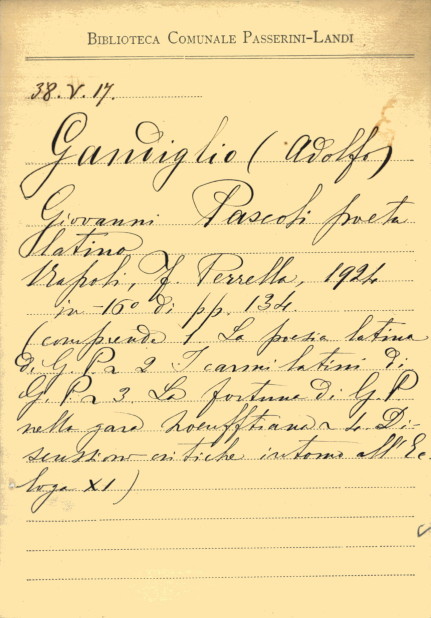 BIBLIOTECA COMUNALE PASSERINI-LANDI
38.V.17.
Gandiglio (Adolfo)
Giovanni Pascoli poeta
latino
Napoli, F. Perrella, 1924
in-16° di pp. 134.
(comprende 1. La poesia latina
di G. P. 2 I carmi latini di
G. P. 3. La fortuna di G P
nella gara hoeufftiana 4. Di-
scussioni critiche intorno all'Ec-
loga XI)